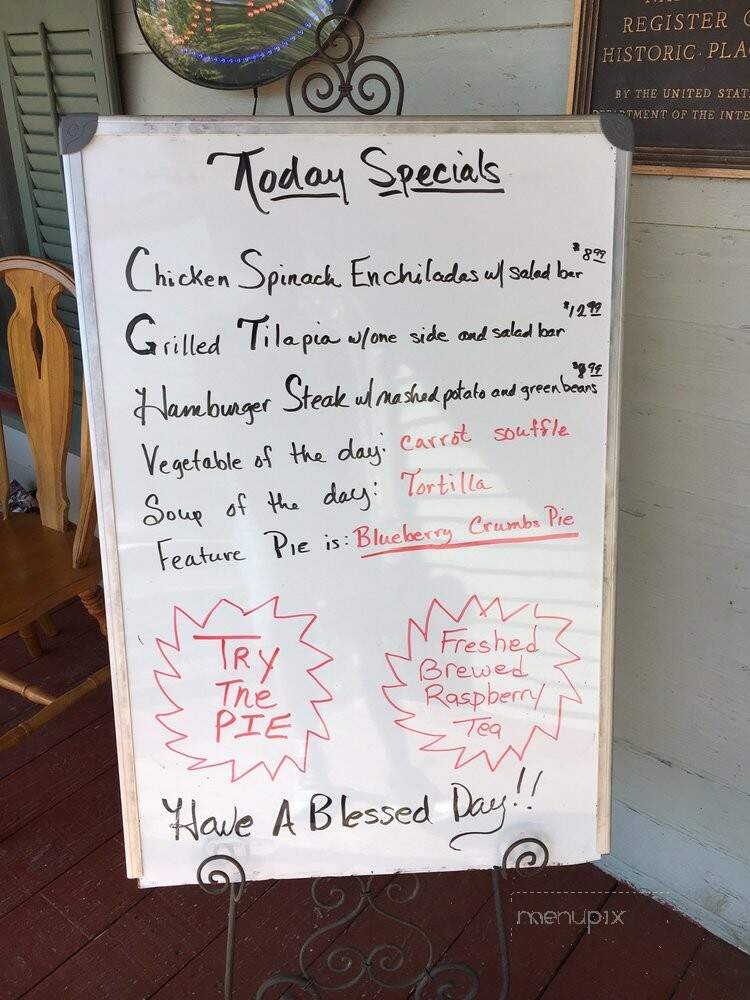 REGISTER
HISTORIC PLA
BY THE UNITED STAT
OF THE INTE
Today Specials
Chicken Spinach Enchiladas w/ salad bar $8.99
Grilled Tilapia w/one side and salad bar $12.99
Hamburger Steak w/ mashed potato and green beans
Vegetable of the day: carrot souffle
Soup of the day: Tortilla
Feature Pie is: Blueberry Crumbs Pie
TRY
The
PIE
Freshed
Brewed
Raspberry
Tea
Have A Blessed Day!!
menupix